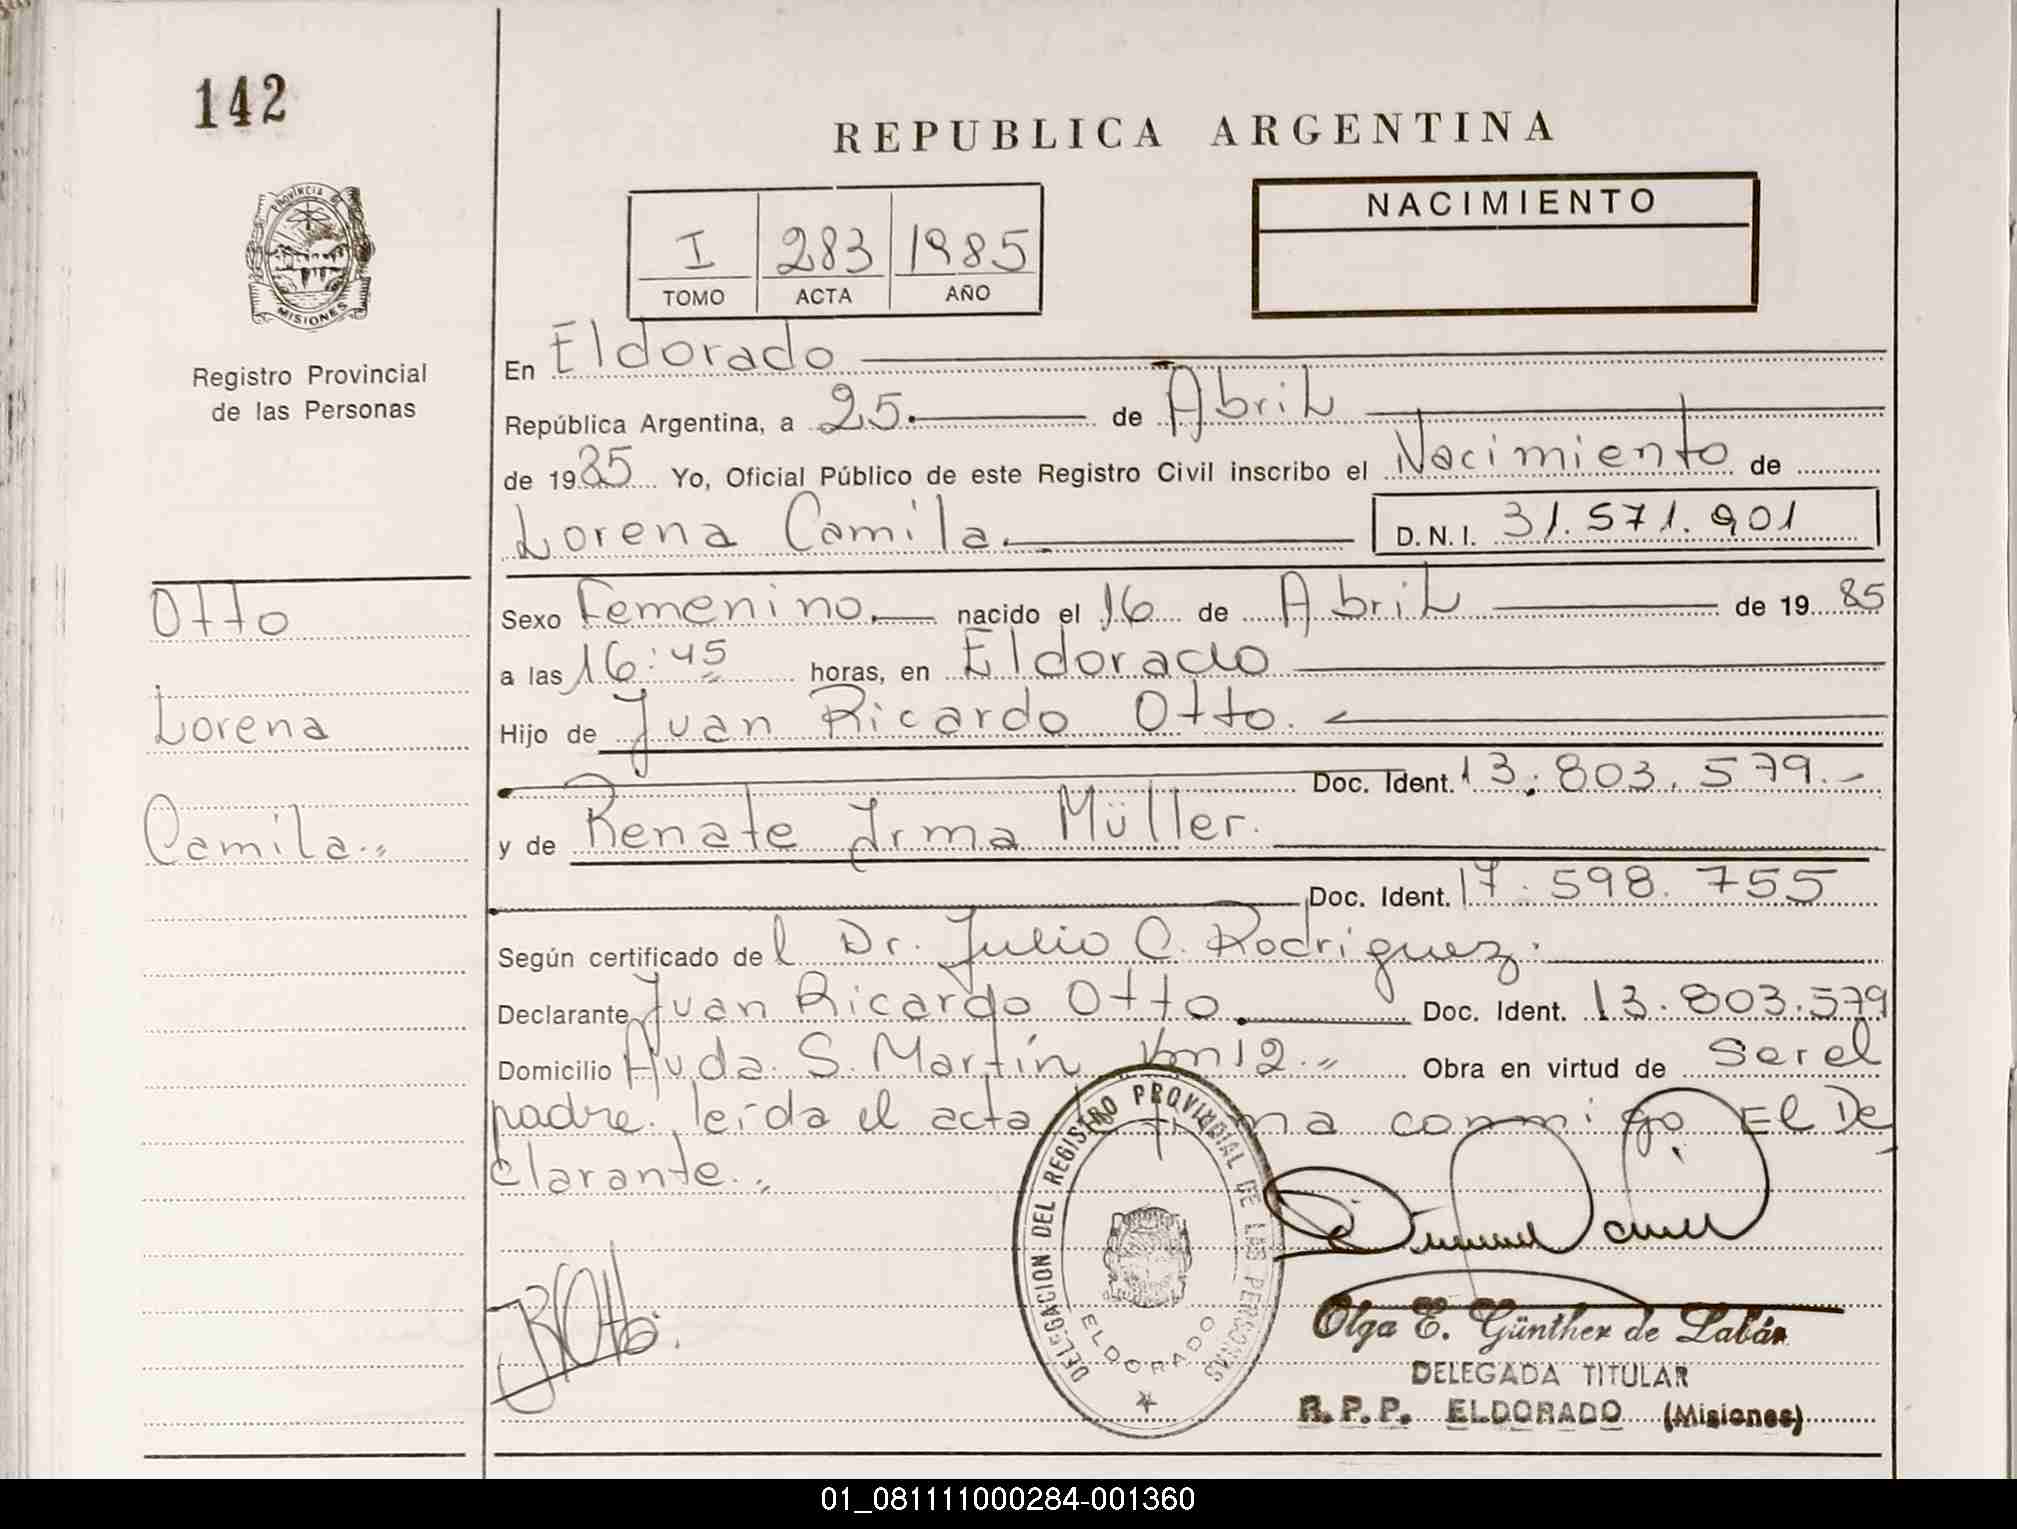 142
REPUBLICA ARGENTINA
PROVINCIA DE
MISIONES
Registro Provincial
de las Personas
NACIMIENTO
I 283 1985
TOMO ACTA AÑO
En Eldorado
República Argentina, a 25. de Abril
de 1985 Yo, Oficial Público de este Registro Civil inscribo el Nacimiento de
Lorena Camila. D.N.I. 31.571.901
Otto
Lorena
Camila..
Sexo Femenino. nacido el 16 de Abril de 1985
a las 16:45 horas, en Eldorado
Hijo de Juan Ricardo Otto.
Doc. Ident. 13.803.579.-
y de Renate Irma Müller.
Doc. Ident. 17.598.755
Según certificado del Dr. Julio C. Rodriguez.
Declarante Juan Ricardo Otto. Doc. Ident. 13.803.579
Domicilio Avda. S. Martín Km 12.. Obra en virtud de ser el
padre. leída el acta la firma conmigo El De
clarante..
JROtto.
DELEGACION DEL REGISTRO PROVINCIAL DE LAS PERSONAS
ELDORADO
Olga E. Günther de Labán
DELEGADA TITULAR
R.P.P. ELDORADO (Misiones)
01_081111000284-001360